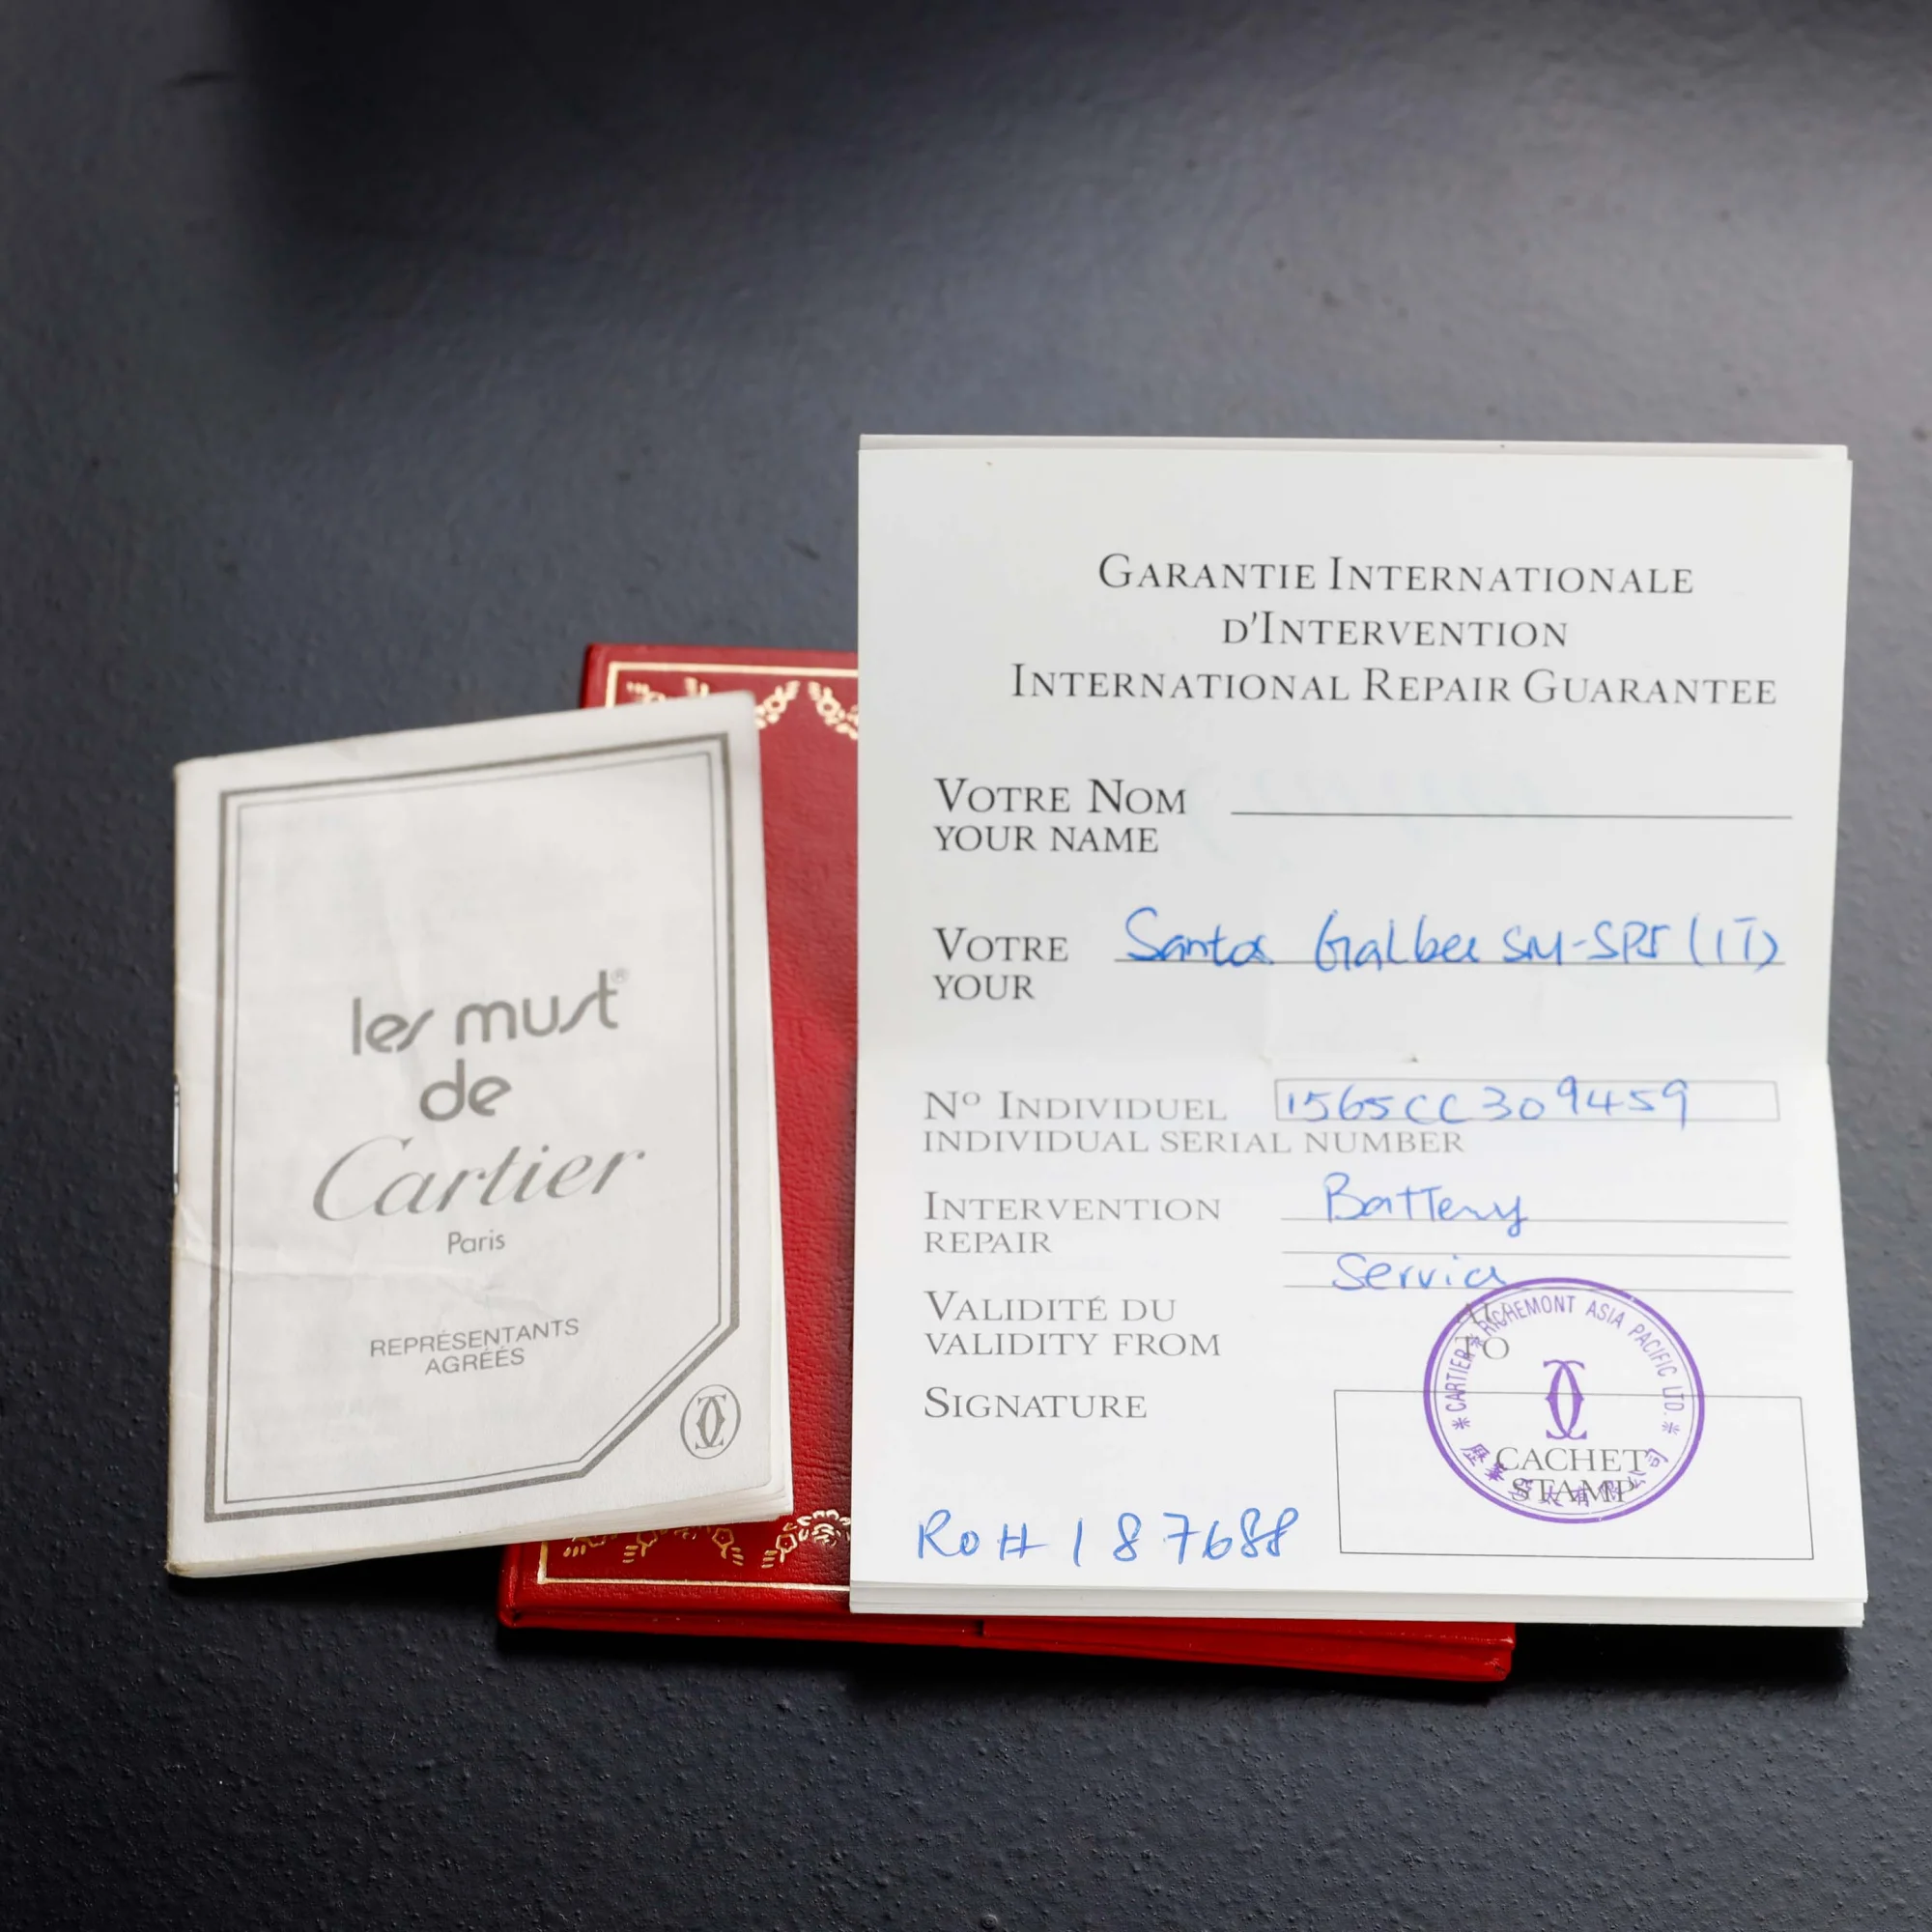 les must®
de
Cartier
Paris
REPRÉSENTANTS
AGRÉÉS
GARANTIE INTERNATIONALE
D'INTERVENTION
INTERNATIONAL REPAIR GUARANTEE
VOTRE NOM
YOUR NAME
VOTRE Santos Galbee SM-SPS (1T)
YOUR
Nº INDIVIDUEL 1565CC309459
INDIVIDUAL SERIAL NUMBER
INTERVENTION Battery
REPAIR
Service
VALIDITÉ DU AU
VALIDITY FROM TO
SIGNATURE
CARTIER * RICHEMONT ASIA PACIFIC LTD. *
CACHET
STAMP
Ro# 187688